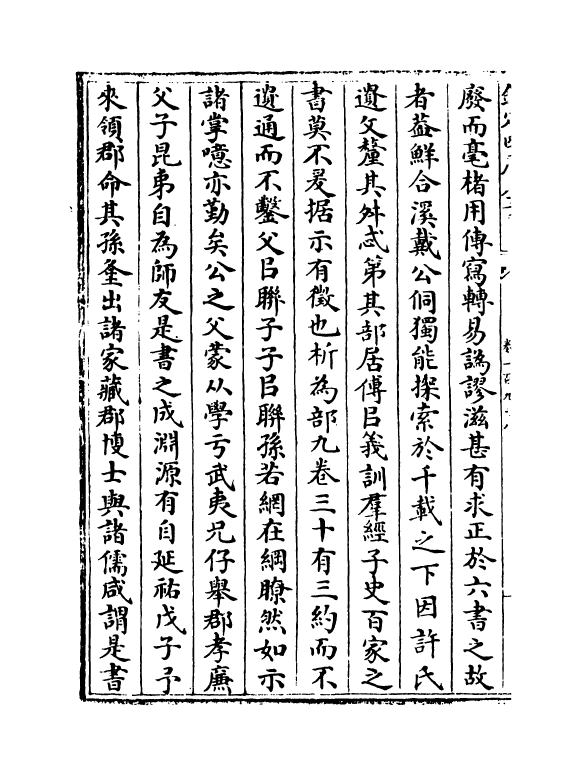 廢而毫楮用傳寫轉易譌謬滋甚有求正於六書之故
者葢鮮合溪戴公侗獨能探索於千載之下因許氏
遺文釐其舛忒第其部居傅㠯義訓羣經子史百家之
書莫不爰据示有徵也析為部九卷三十有三約而不
遺通而不鑿父㠯聯子子㠯聯孫若網在綱瞭然如示
諸掌噫亦勤矣公之父蒙从學亏武夷兄仔舉郡孝廉
父子昆弟自為師友是書之成淵源有自延祐戊子予
來領郡命其孫奎出諸家藏郡慱士與諸儒咸謂是書